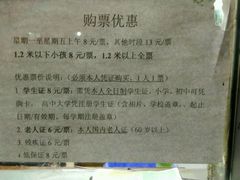 购票优惠
星期一至星期五上午 8 元/票，其他时段 13 元/票
1.2 米以下小孩 8 元/票，1.2 米以上全票
优惠票价说明：（必须本人凭证购买：1 人 1 票）
1. 学生证 8 元/票：需凭本人全日制学生证，小学、初中可凭
胸卡，高中大学凭注册学生证（含相片、学校盖章，起止
日期/有效期，每学期注册盖章）
2. 老人证 6 元/票：本人国内老人证（60 岁以上）
3. 残疾证 6 元/票
4. 低保证 8 元/票